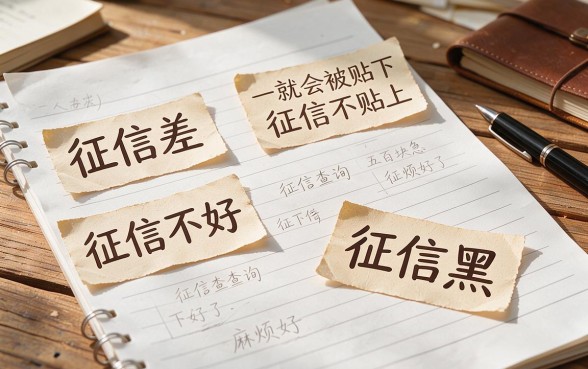 一就会被贴下
征信不贴上
征信差
征信查询
五百块急
征烦好了
征信不好
征下借
征信黑
征信查查询
下好了
麻烦好